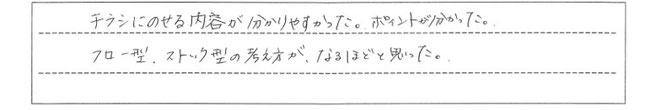 チラシにのせる内容が分かりやすかった。ポイントが分かった。
フロー型、ストック型の考え方が、なるほどと思った。